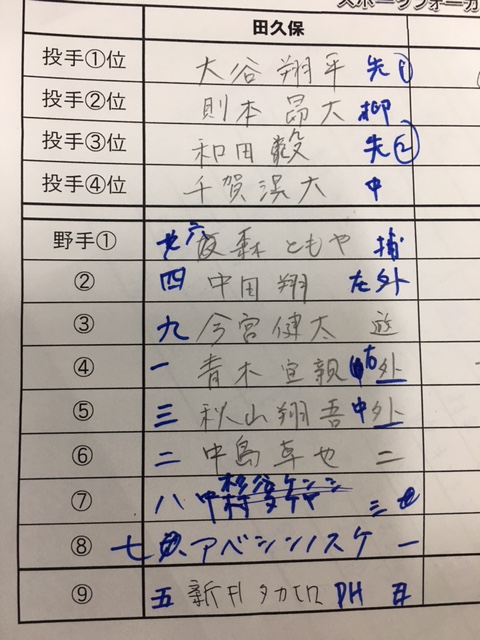 スポーツフォーカ
田久保
投手①位 大谷翔平 先①
投手②位 則本昂大 抑
投手③位 和田毅 先②
投手④位 千賀滉大 中
野手① 六 森ともや 捕
② 四 中田翔 左外
③ 九 今宮健太 遊
④ 一 青木宣親 右外
⑤ 三 秋山翔吾 中外
⑥ 二 中島卓也 二
⑦ 八 杉谷ケンシ 中村タケヤ 三
⑧ 七 アベシンノスケ 一
⑨ 五 新井タカヒロ DH